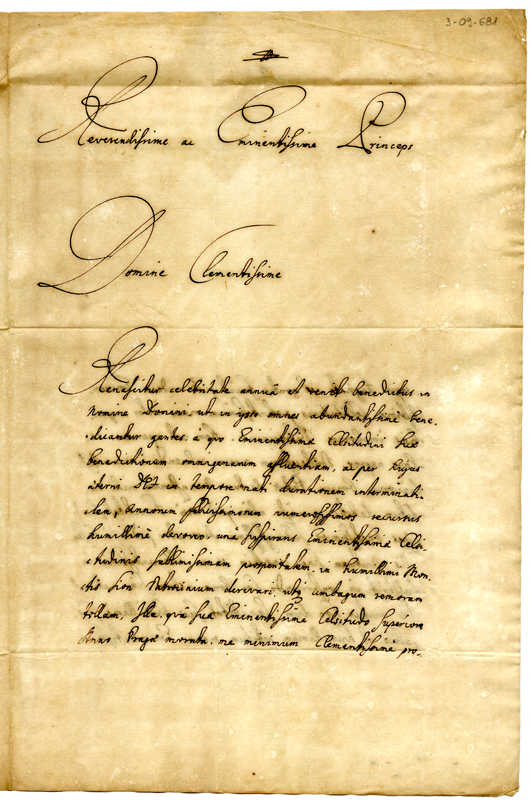 3-09-681
Reverendissime ac Eminentissime Princeps
Domine Clementissime
Renascitur celebritate annuâ et venit benedictus in
Nomine Domini, ut in ipso omnes abundantissimè bene-
dicantur gentes, è quo Eminentissimae Celsitudini Suae
benedictionum omnigenarum affluentiam, ac per Hujus
aeterni in tempore nati durationem interminabi-
lem, Annorum felicissimorum numerosissimos recursus
humillimè devoveo, unà suspirans Eminentissimae Celsi-
tudinis sublimissimam prosperitatem, in humillimi Mon-
tis Sion Patrocinium derivari, utque ambagum remoram
tollam, Illa, quâ sua Eminentissima Celsitudo Superiore
Anno Pragae morata, me minimum Clementissimè pro-